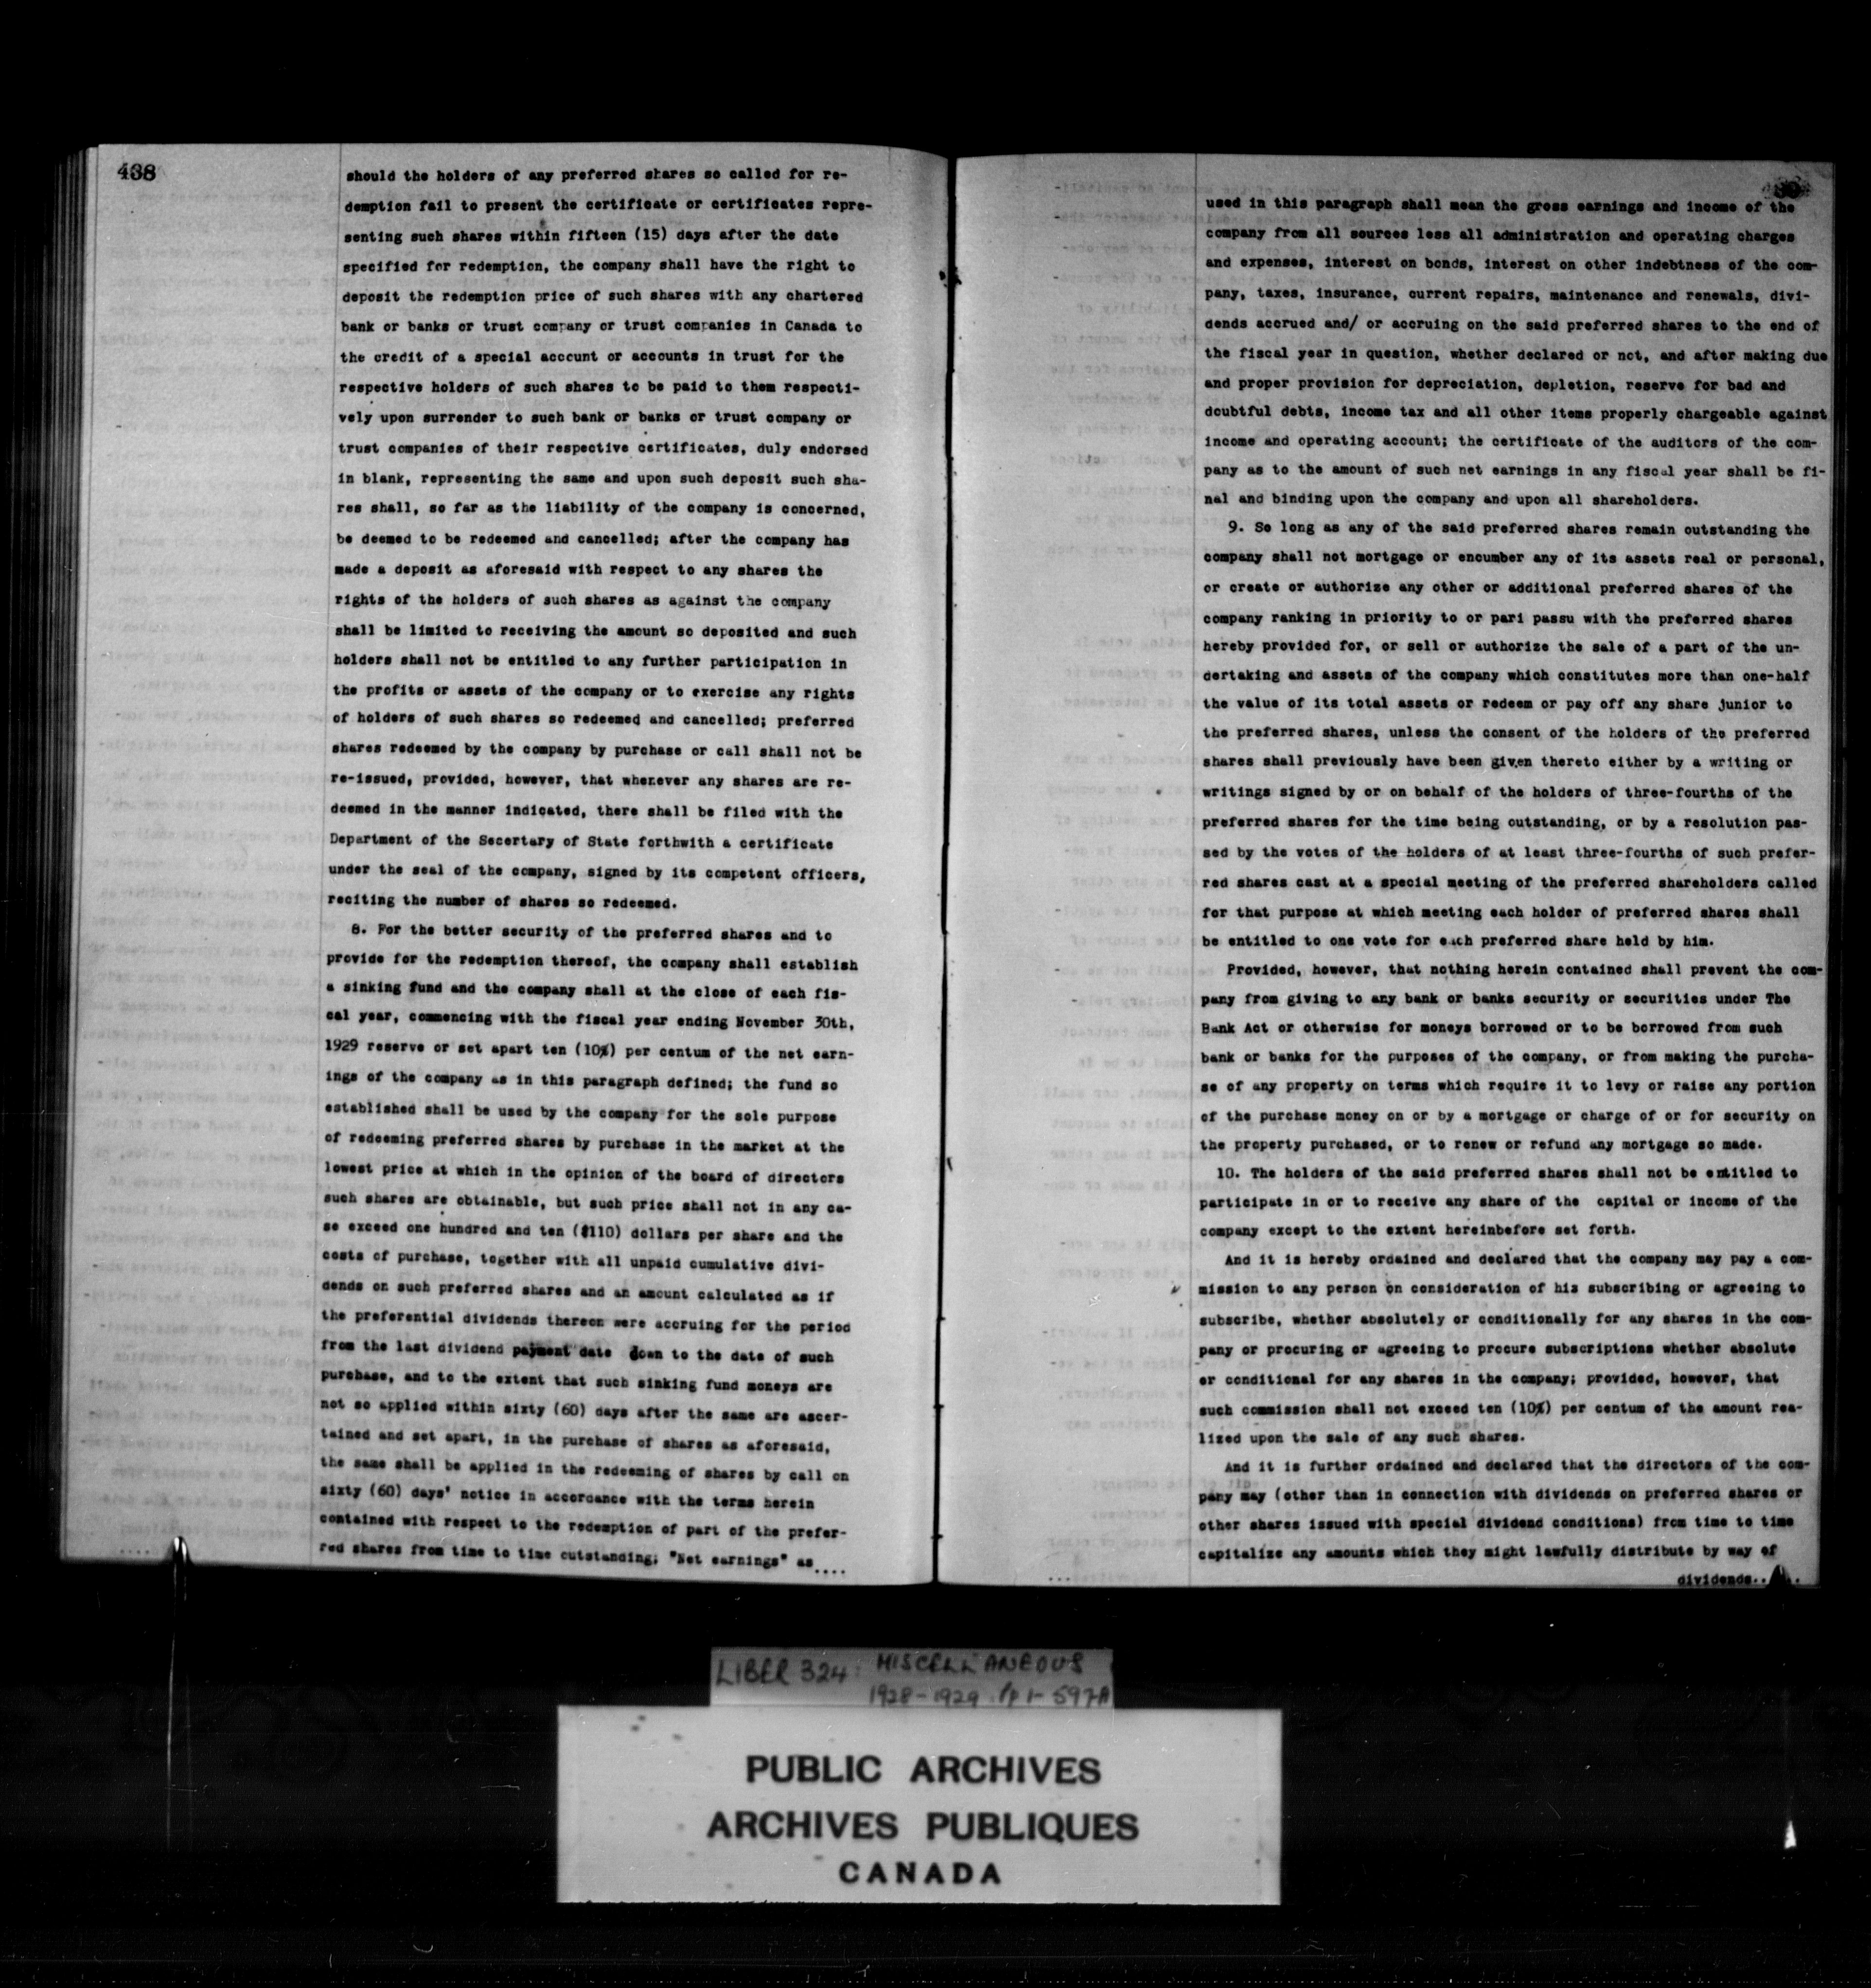 438
should the holders of any preferred shares so called for re-
demption fail to present the certificate or certificates repre-
senting such shares within fifteen (15) days after the date
specified for redemption, the company shall have the right to
deposit the redemption price of such shares with any chartered
bank or banks or trust company or trust companies in Canada to
the credit of a special account or accounts in trust for the
respective holders of such shares to be paid to them respecti-
vely upon surrender to such bank or banks or trust company or
trust companies of their respective certificates, duly endorsed
in blank, representing the same and upon such deposit such sha-
res shall, so far as the liability of the company is concerned,
be deemed to be redeemed and cancelled; after the company has
made a deposit as aforesaid with respect to any shares the
rights of the holders of such shares as against the company
shall be limited to receiving the amount so deposited and such
holders shall not be entitled to any further participation in
the profits or assets of the company or to exercise any rights
of holders of such shares so redeemed and cancelled; preferred
shares redeemed by the company by purchase or call shall not be
re-issued, provided, however, that whenever any shares are re-
deemed in the manner indicated, there shall be filed with the
Department of the Secertary of State forthwith a certificate
under the seal of the company, signed by its competent officers,
reciting the number of shares so redeemed.
8. For the better security of the preferred shares and to
provide for the redemption thereof, the company shall establish
a sinking fund and the company shall at the close of each fis-
cal year, commencing with the fiscal year ending November 30th,
1929 reserve or set apart ten (10%) per centum of the net earn-
ings of the company as in this paragraph defined; the fund so
established shall be used by the company for the sole purpose
of redeeming preferred shares by purchase in the market at the
lowest price at which in the opinion of the board of directors
such shares are obtainable, but such price shall not in any ca-
se exceed one hundred and ten ($110) dollars per share and the
costs of purchase, together with all unpaid cumulative divi-
dends on such preferred shares and an amount calculated as if
the preferential dividends thereon were accruing for the period
from the last dividend payment date down to the date of such
purchase, and to the extent that such sinking fund moneys are
not so applied within sixty (60) days after the same are ascer-
tained and set apart, in the purchase of shares as aforesaid,
the same shall be applied in the redeeming of shares by call on
sixty (60) days' notice in accordance with the terms herein
contained with respect to the redemption of part of the prefer-
red shares from time to time outstanding; "Net earnings" as....
used in this paragraph shall mean the gross earnings and income of the
company from all sources less all administration and operating charges
and expenses, interest on bonds, interest on other indebtness of the com-
pany, taxes, insurance, current repairs, maintenance and renewals, divi-
dends accrued and/ or accruing on the said preferred shares to the end of
the fiscal year in question, whether declared or not, and after making due
and proper provision for depreciation, depletion, reserve for bad and
doubtful debts, income tax and all other items properly chargeable against
income and operating account; the certificate of the auditors of the com-
pany as to the amount of such net earnings in any fiscal year shall be fi-
nal and binding upon the company and upon all shareholders.
9. So long as any of the said preferred shares remain outstanding the
company shall not mortgage or encumber any of its assets real or personal,
or create or authorize any other or additional preferred shares of the
company ranking in priority to or pari passu with the preferred shares
hereby provided for, or sell or authorize the sale of a part of the un-
dertaking and assets of the company which constitutes more than one-half
the value of its total assets or redeem or pay off any share junior to
the preferred shares, unless the consent of the holders of the preferred
shares shall previously have been given thereto either by a writing or
writings signed by or on behalf of the holders of three-fourths of the
preferred shares for the time being outstanding, or by a resolution pas-
sed by the votes of the holders of at least three-fourths of such prefer-
red shares cast at a special meeting of the preferred shareholders called
for that purpose at which meeting each holder of preferred shares shall
be entitled to one vote for each preferred share held by him.
Provided, however, that nothing herein contained shall prevent the com-
pany from giving to any bank or banks security or securities under The
Bank Act or otherwise for moneys borrowed or to be borrowed from such
bank or banks for the purposes of the company, or from making the purcha-
se of any property on terms which require it to levy or raise any portion
of the purchase money on or by a mortgage or charge of or for security on
the property purchased, or to renew or refund any mortgage so made.
10. The holders of the said preferred shares shall not be entitled to
participate in or to receive any share of the capital or income of the
company except to the extent hereinbefore set forth.
And it is hereby ordained and declared that the company may pay a com-
mission to any person on consideration of his subscribing or agreeing to
subscribe, whether absolutely or conditionally for any shares in the com-
pany or procuring or agreeing to procure subscriptions whether absolute
or conditional for any shares in the company; provided, however, that
such commission shall not exceed ten (10%) per centum of the amount rea-
lized upon the sale of any such shares.
And it is further ordained and declared that the directors of the com-
pany may (other than in connection with dividends on preferred shares or
other shares issued with special dividend conditions) from time to time
capitalize any amounts which they might lawfully distribute by way of
dividends....
LIBER 324: MISCELLANEOUS
1928-1929 Pp 1-597A
PUBLIC ARCHIVES
ARCHIVES PUBLIQUES
CANADA